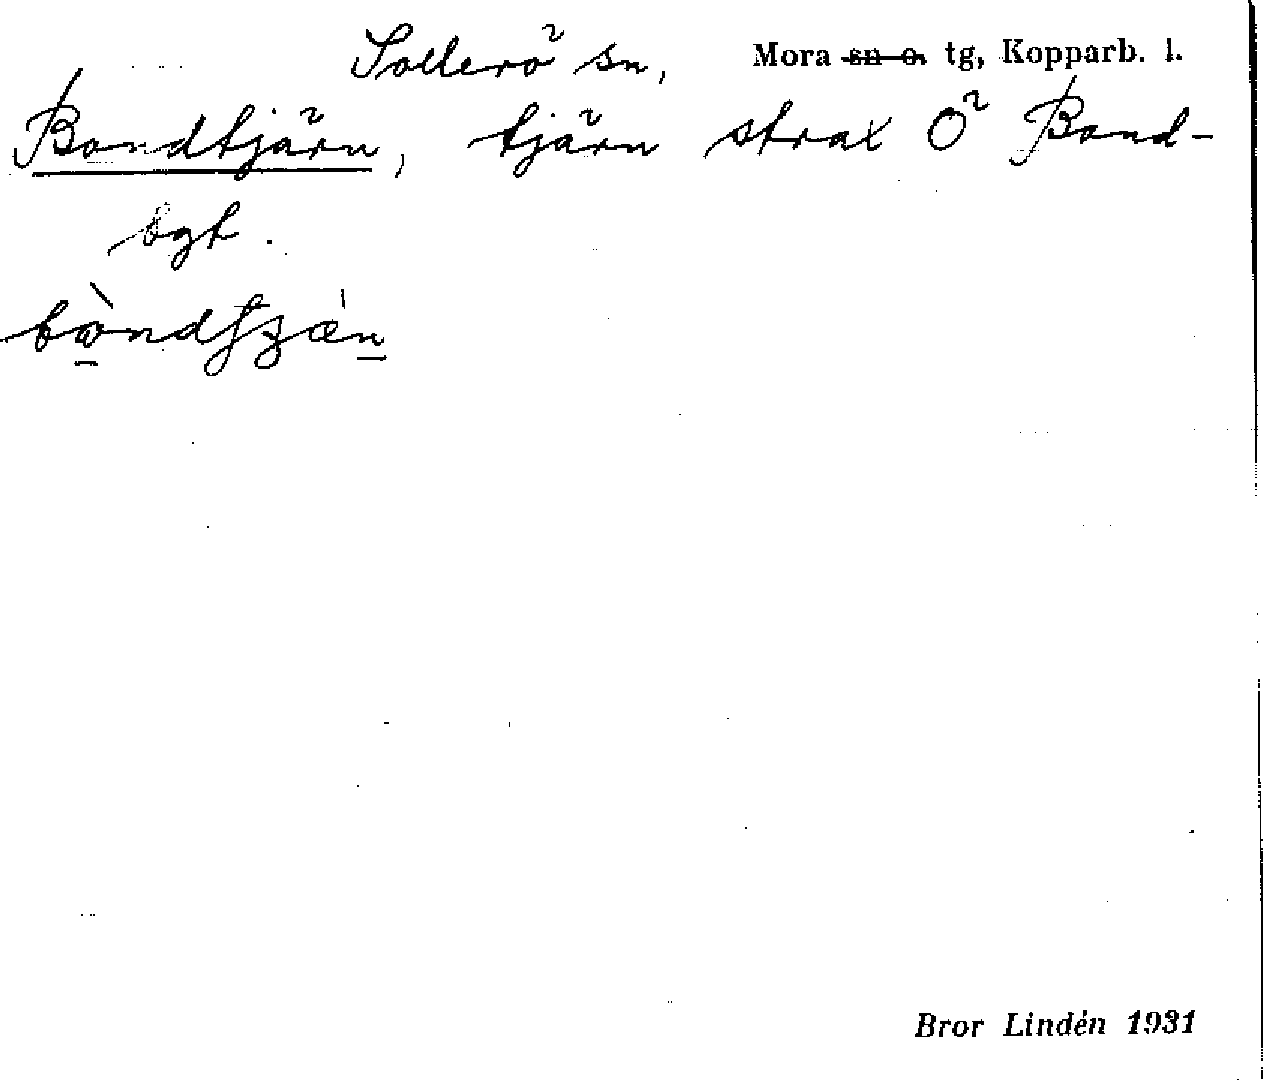 Sollerö sn, Mora sn o. tg, Kopparb. l.
Bondtjärn, tjärn strax Ö Bond-
bgt.
Bror Lindén 1931